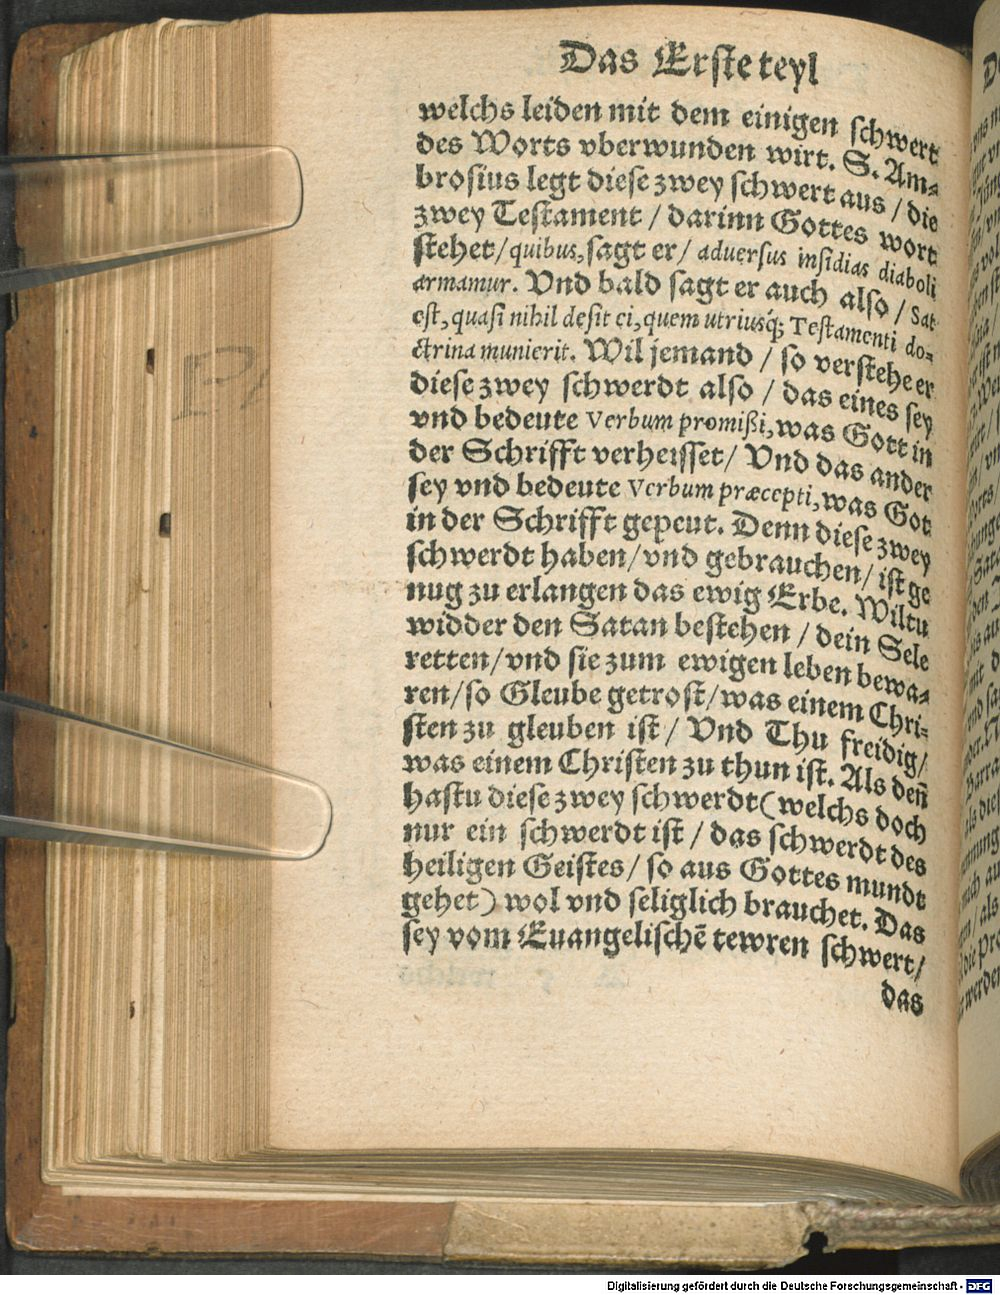 Das Erste teyl
welchs leiden mit dem einigen schwert
des Worts vberwunden wirt. S. Am-
brosius legt diese zwey schwert aus / die
zwey Testament / darinn Gottes wort
stehet / quibus, sagt er / aduersus insidias diaboli
armamur. Vnd bald sagt er auch also / Sat
est, quasi nihil desit ei, quem utriusq́; Testamenti do-
ctrina munierit. Wil jemand / so verstehe er
diese zwey schwerdt also / das eines sey
vnd bedeute Verbum promißi, was Gott in
der Schrifft verheisset / Vnd das ander
sey vnd bedeute Verbum præcepti, was Got
in der Schrifft gepeut. Denn diese zwey
schwerdt haben / vnd gebrauchen / ist ge
nug zu erlangen das ewig Erbe. Wiltu
widder den Satan bestehen / dein Sele
retten / vnd sie zum ewigen leben bewa-
ren / so Gleube getrost / was einem Chri-
sten zu gleuben ist / Vnd Thu freidig /
was einem Christen zu thun ist. Als deñ
hastu diese zwey schwerdt ( welchs doch
nur ein schwerdt ist / das schwerdt des
heiligen Geistes / so aus Gottes mundt
gehet ) wol vnd seliglich brauchet. Das
sey vom Euangelischē tewren schwert /
das
Digitalisierung gefördert durch die Deutsche Forschungsgemeinschaft - DFG